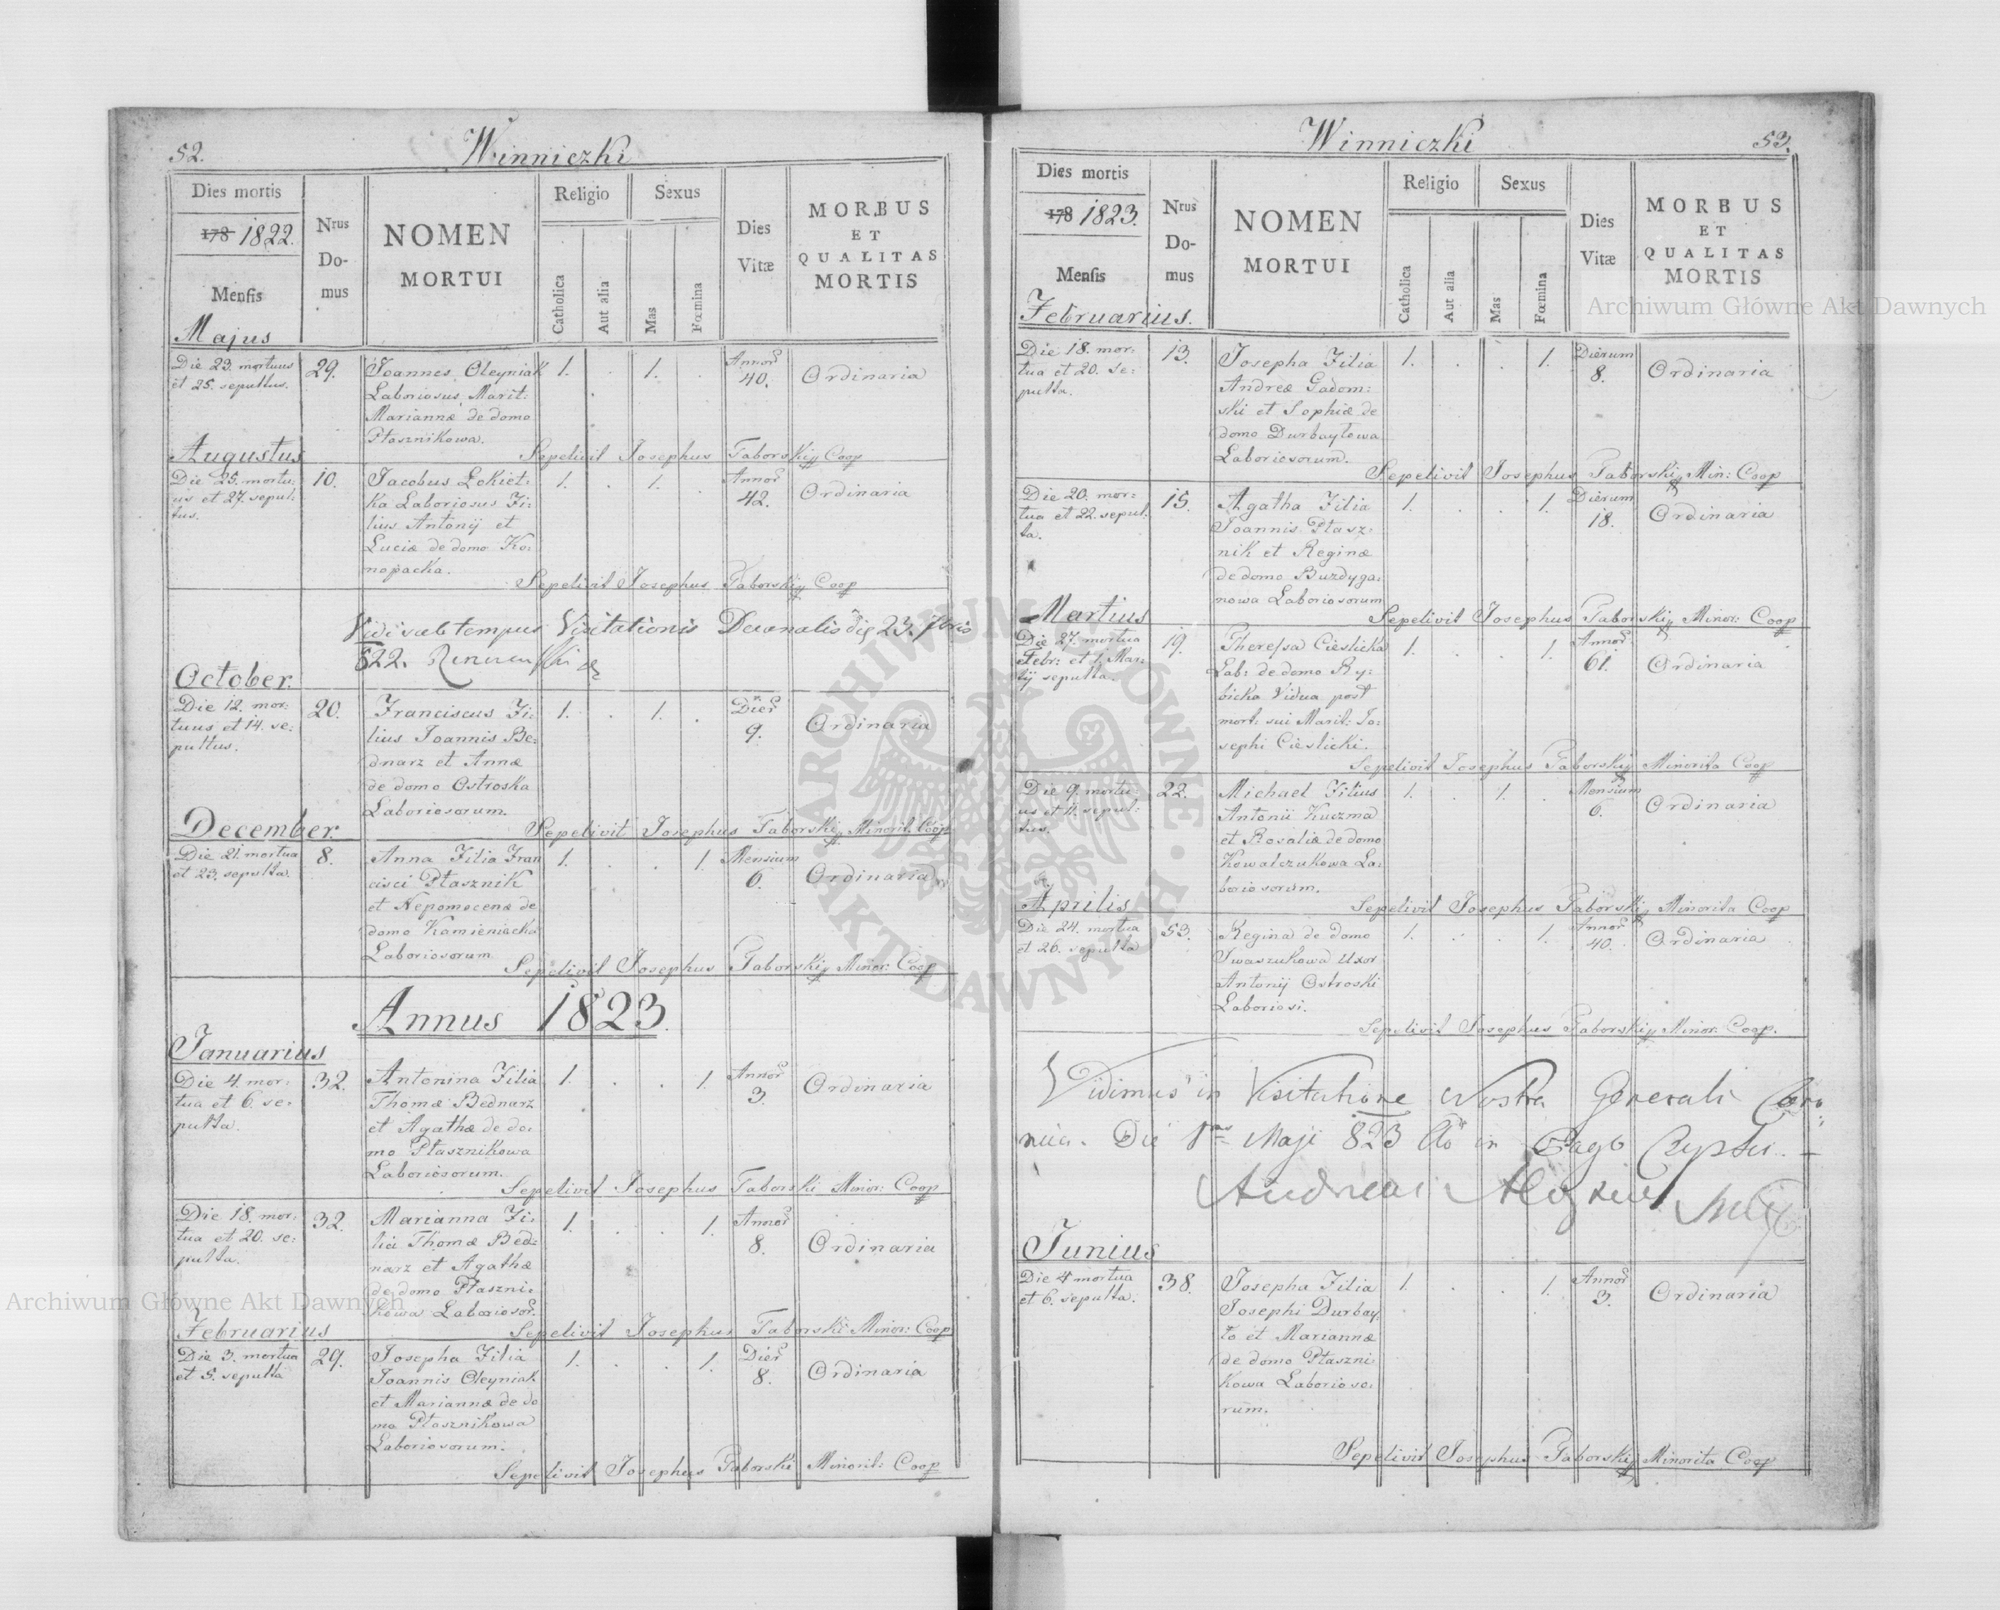 52.
Winniczki
Dies mortis
178 1822.
Mensis
Nrus Do-mus
NOMEN
MORTUI
Religio
Catholica
Aut alia
Sexus
Mas
Fœmina
Dies
Vitæ
MORBUS
ET
QUALITAS
MORTIS
Majus
Die 23. mortuus
et 25. sepultus.
29.
Joannes Oleyniak
Laboriosus, Marit:
Mariannæ de domo
Ptasznikowa.
1. . 1. .
Annor
40.
Ordinaria
Sepelivit Josephus Taborskij Coop
Augustus
Die 25. mortu-
us et 27. sepul:
tus.
10.
Jacobus Lokiet-
ka Laboriosus Fi-
lius Antonij et
Luciæ de domo Ko-
nopacka.
1. . 1. .
Annor
42.
Ordinaria
Sepelivit Josephus Taborskij Coop
Vidi sub tempus Visitationis Decanalis die 23. 7bris
822.
October.
Die 12. mor:
tuus et 14. se-
pultus.
20.
Franciscus Fi:
lius Joannis Be:
dnarz et Annæ
de domo Ostroska
Laboriosorum.
1. . 1. .
Dier
9.
Ordinaria
Sepelivit Josephus Taborskij Minorit. Coop
December.
Die 21. mortua
et 23. sepulta.
8.
Anna Filia Fran
cisci Ptasznik
et Nepomocenæ de
domo Kamieniacka
Laboriosorum
1. . . 1.
Mensium
6.
Ordinaria
Sepelivit Josephus Taborskij Minor: Coop
Annus 1823.
Januarius
Die 4. mor:
tua et 6. se-
pulta.
32.
Antonina Filia
Thomæ Bednarz
et Agathæ de do-
mo Ptasznikowa
Laboriosorum.
1. . . 1.
Annor
3.
Ordinaria
Sepelivit Josephus Taborski Minor: Coop
Die 18. mor:
tua et 20. se:
pulta.
32.
Marianna Fi:
lia Thomæ Bed:
narz et Agathæ
de domo Ptaszni:
kowa Laboriosor.
1. . . 1.
Annor
8.
Ordinaria
Sepelivit Josephus Taborskij Minor: Coop
Februarius
Die 3. mortua
et 5. sepulta
29.
Josepha Filia
Joannis Oleyniak
et Mariannæ de do
mo Ptasznikowa
Laboriosorum.
1. . . 1.
Dier
8.
Ordinaria
Sepelivit Josephus Taborski Minorit: Coop
Winniczki
53.
Dies mortis
178 1823.
Mensis
Nrus Do-mus
NOMEN
MORTUI
Religio
Catholica
Aut alia
Sexus
Mas
Fœmina
Dies
Vitæ
MORBUS
ET
QUALITAS
MORTIS
Februarius.
Die 18. mor:
tua et 20. se:
pulta.
13.
Josepha Filia
Andreæ Gadom:
ski et Sophiæ de
domo Durbaytowa
Laboriosorum.
1. . . 1.
Dierum
8.
Ordinaria
Sepelivit Josephus Taborskij Min: Coop
Die 20. mor:
tua et 22. sepul.
ta.
15.
Agatha Filia
Joannis Ptasz-
nik et Reginæ
de domo Buzdyga:
nowa Laboriosorum
1. . . 1.
Dierum
18.
Ordinaria
Sepelivit Josephus Taborskij Minor: Coop
Martius
Die 27. mortua
Febr: et 1. Mar-
tij sepulta.
19.
Theressa Cieslicka
Lab: de domo Ry-
bicka Vidua post
mort: sui Marit: Jo:
sephi Cieslicki.
1. . . 1.
Annor
61.
Ordinaria
Sepelivit Josephus Taborskij Minorita Coop
Die 9. mortu-
us et 11. sepul:
tus.
22.
Michael Filius
Antonii Kuczma
et Rosaliæ de domo
Kowalczukowa La:
boriosorum.
1. . 1. .
Mensium
6.
Ordinaria
Sepelivit Josephus Taborskij Minorita Coop
Aprilis
Die 24. mortua
et 26. sepulta
53.
Regina de domo
Iwaszukowa Uxor
Antonij Ostroski
Laboriosi.
1. . . 1.
Annor
40.
Ordinaria
Sepelivit Josephus Taborskij Minor: Coop.
Vidimus in Visitatione Nostra Generali Cano
nica. Die 1ma Maji 823 in Pago
Andreas Aloysius
Junius
Die 4 mortua
et 6. sepulta.
38.
Josepha Filia
Josephi Durbay
to et Mariannæ
de domo Ptaszni
kowa Laborioso:
rum.
1. . . 1.
Annor
3.
Ordinaria
Sepelivit Josephus Taborskij Minorita Coop
Archiwum Główne Akt Dawnych
Archiwum Główne Akt Dawnych
ARCHIWUM GŁÓWNE AKT DAWNYCH